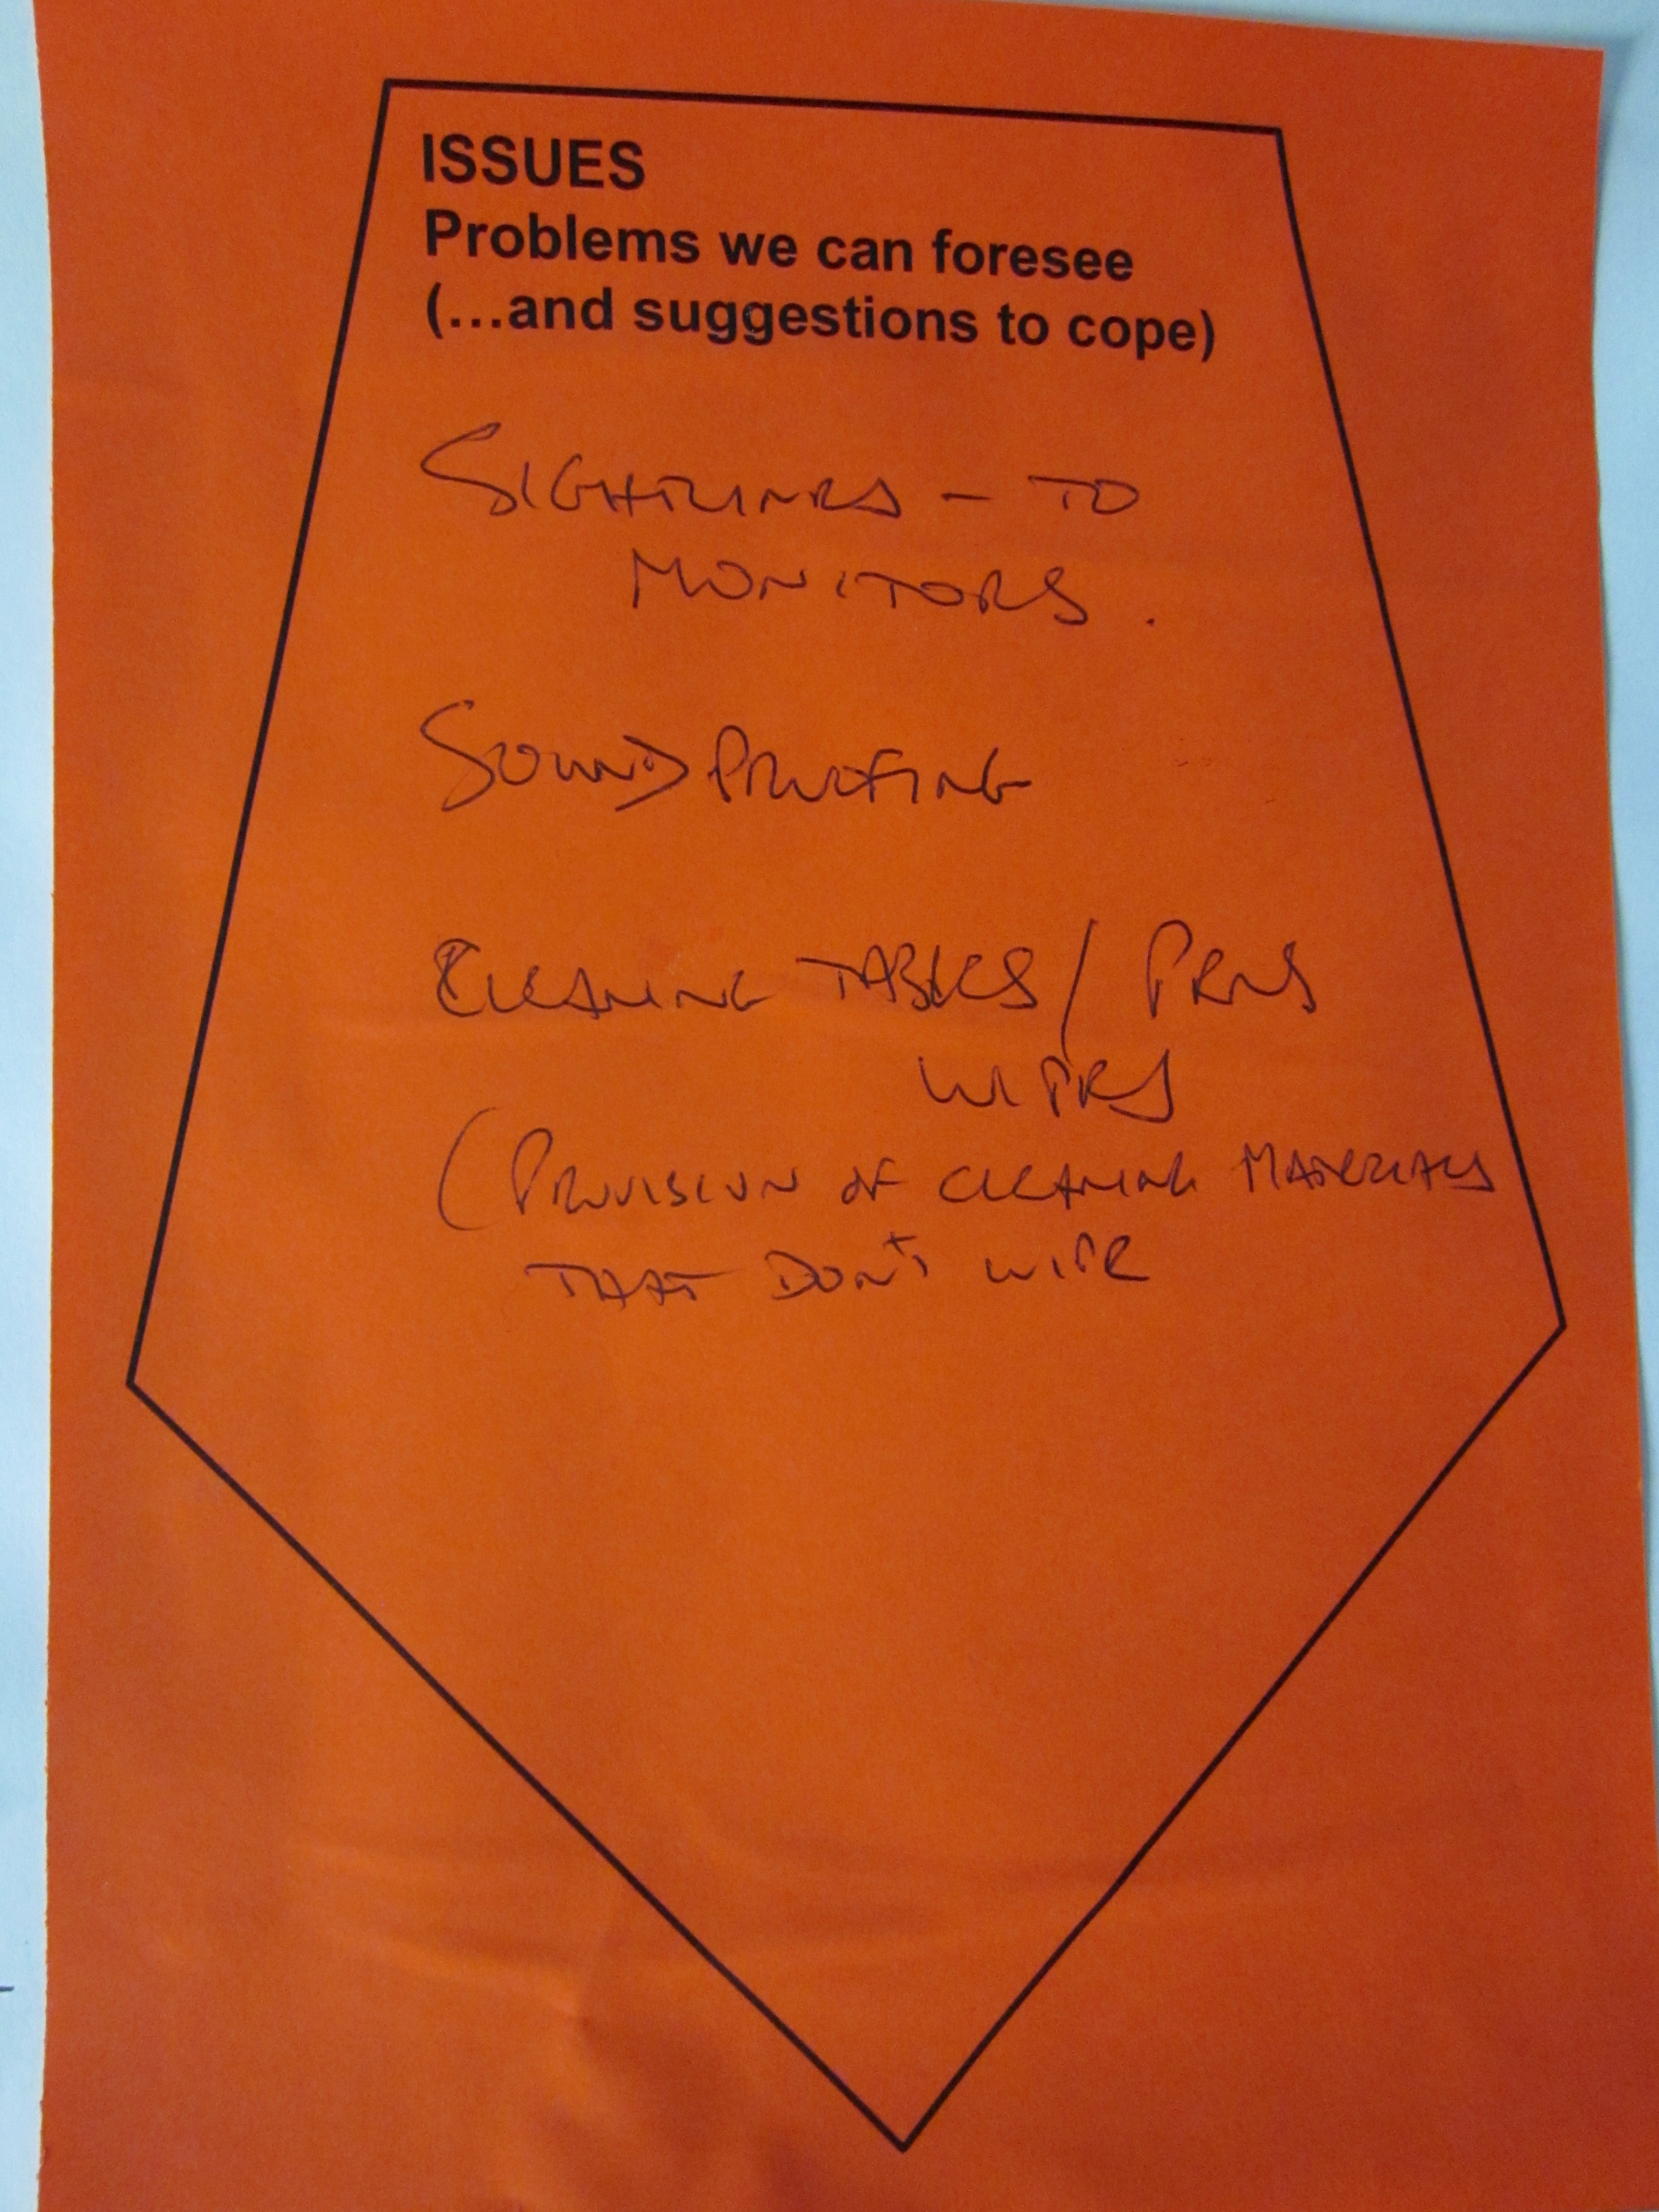 ISSUES
Problems we can foresee
(...and suggestions to cope)
SIGHTLINES – TO
MONITORS.
SOUND PROOFING
CLEANING TABLES / PENS
WIPES
(PROVISION OF CLEANING MATERIALS
THAT DON'T WIPE